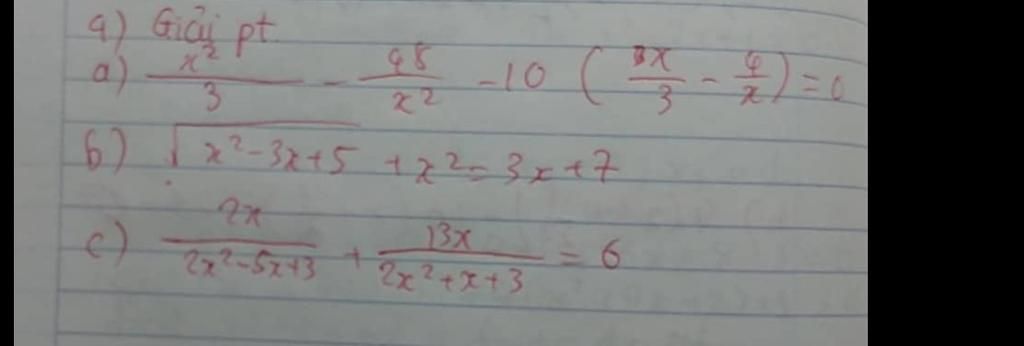 4) Giải pt
a) x²/3 - 48/x² - 10 (x/3 - 4/x) = 0
b) √(x²-3x+5) + x² = 3x+7
c) 2x/(2x²-5x+3) + 13x/(2x²+x+3) = 6